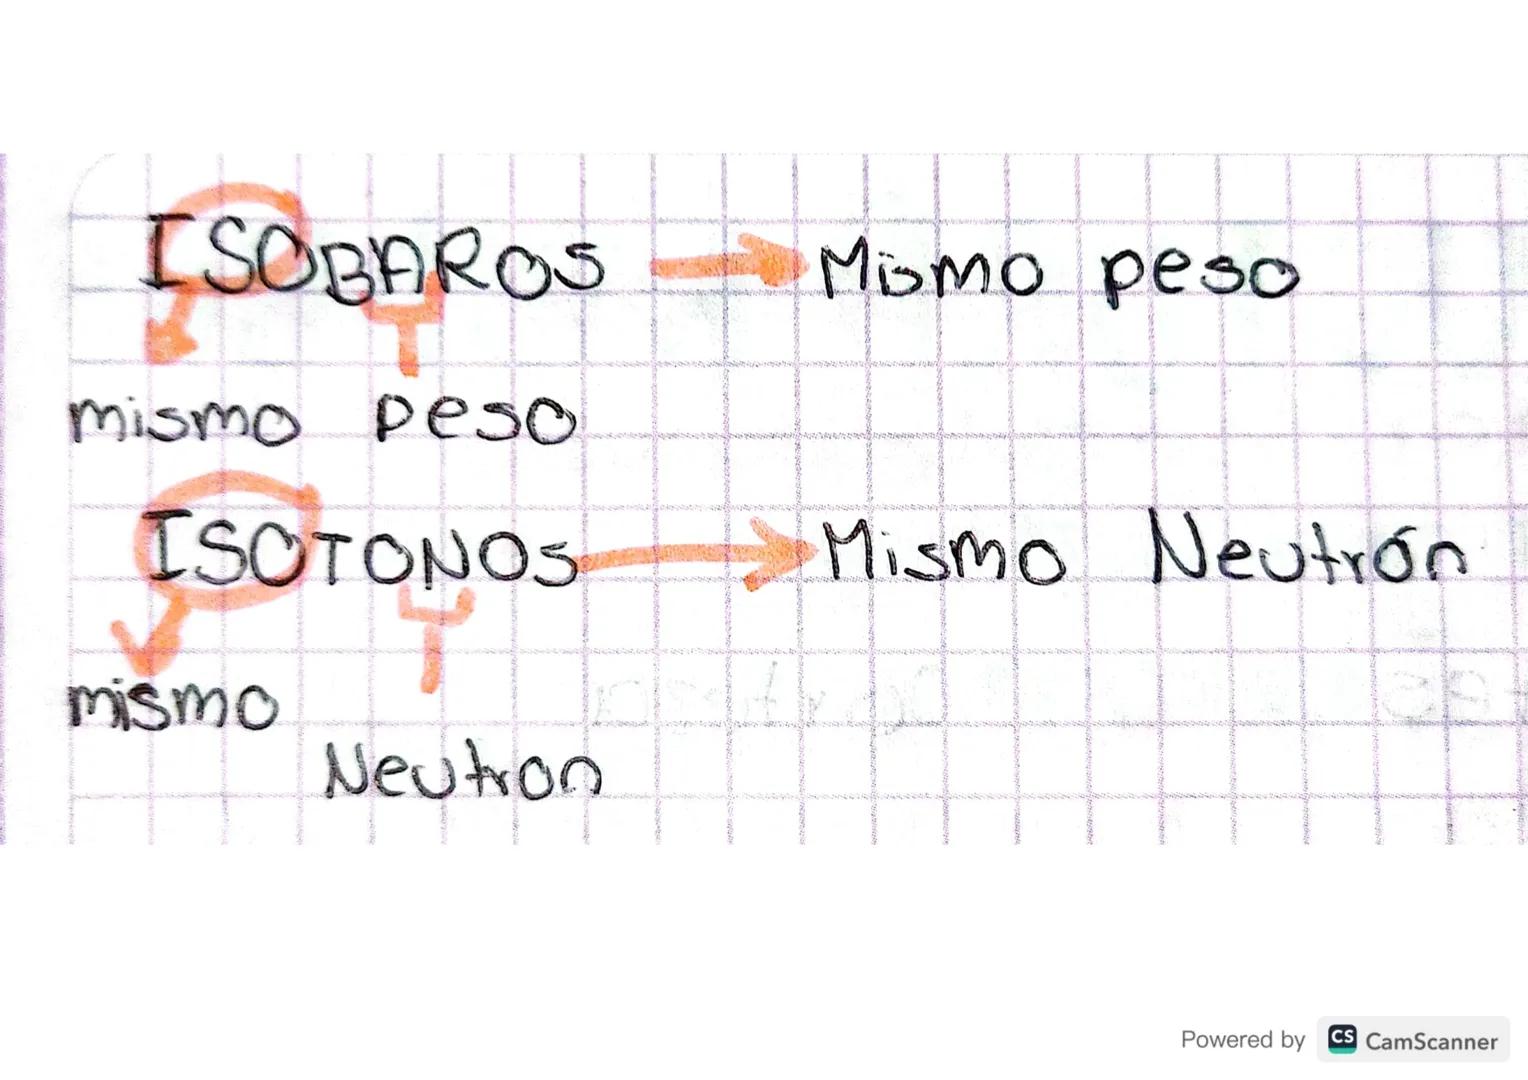 ISOBAROS → Mismo peso
mismo peso
ISOTONOS → Mismo Neutrón
mismo
Neutron
Powered by CS CamScanner